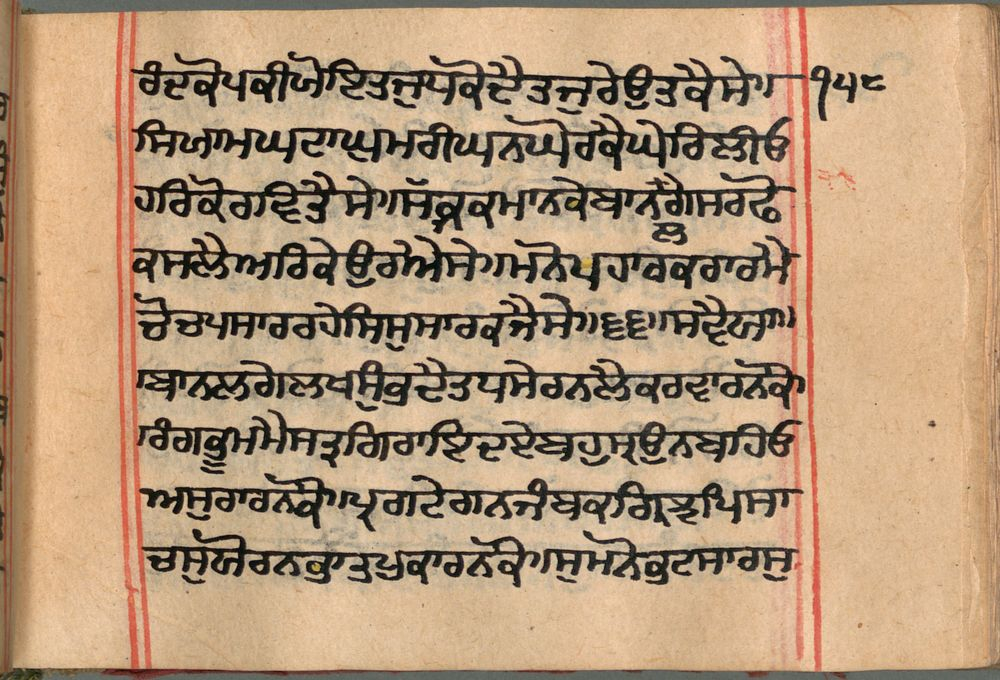 ਰੰਦਕੋਪਕੀਯੋਇਤਜੁਧਕੋਦੈਤਜੁਰੇਉਤਕੈਸੇ॥ ੧੫੯
ਸਿਯਾਮਘਟਾਘੁਮਰੀਘਨਘੋਰਕੈਘੇਰਿਲੀਓ
ਹਰਿਕੋਰਵਿਤੈਸੇ॥ਸੱਕ੍ਰਕਮਾਨਕੇਬਾਨਲਗੈਸਰਫੋ
ਕਸਲੈਅਰਿਕੇਉਰਐਸੇ॥ਮਨੋਪਹਾਰਕਰਾਰਮੇ
ਚੋਚਪਸਾਰਰਹੇਸਿਸੁਸਾਰਕਜੈਸੇ॥੬੬॥ਸਵੈਯਾ॥
ਬਾਨਲਗੇਲਖਸੁੰਭੁਦੈਤਧਸੇਰਨਲੈਕਰਵਾਰਨਕੋ
ਰੰਗਭੂਮਮੈਸਤ੍ਰੁਗਿਰਾਇਦਏਬਹੁਸ੍ਰਉਨਬਹਿਓ
ਅਸੁਰਾਰਨਕੋ॥ਪ੍ਰਗਟੇਗਨਜੰਬਕਗ੍ਰਿਝਪਿਸਾ
ਚਸੁਯੋਰਨਭਾਤੁਪੁਕਾਰਨਕੋ॥ਸੁਮਨੋਭਟਸਾਰਸੁ